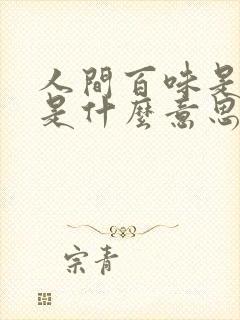 人間百味是
是什麼意思
宗青